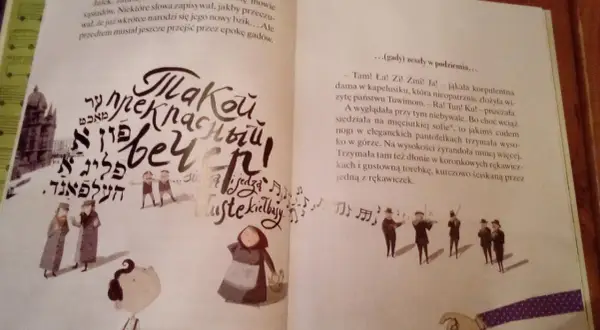 wypadów. Niektóre słowa zapisywał, jakby przeczu-
wał, że już wkrótce narodzi się jego nowy bzik... Ale
przedtem musiał jeszcze przejść przez epokę gadów.
Такой
прекрасный
вечер!
ער
מאכט
פון א
פליג א
העלפאנד.
i jedzą
tłuste kiełbasy
...(gady) zeszły w podziemia...
– Tam! Ła! Zi! Żmi! Ja! – jąkała korpulentna
dama w kapelusiku, która nieopatrznie złożyła wi-
zytę państwu Tuwimom. – Ra! Tun! Ku! – piszczała.
A wyglądała przy tym niebywale. Bo choć wciąż
siedziała na mięciutkiej sofie, to jakimś cudem
nogi w eleganckich pantofelkach trzymała wyso-
ko w górze. Na wysokości żyrandola mniej więcej.
Trzymała tam też dłonie w koronkowych rękawicz-
kach i gustowną torebkę, kurczowo ściskaną przez
jedną z rękawiczek.